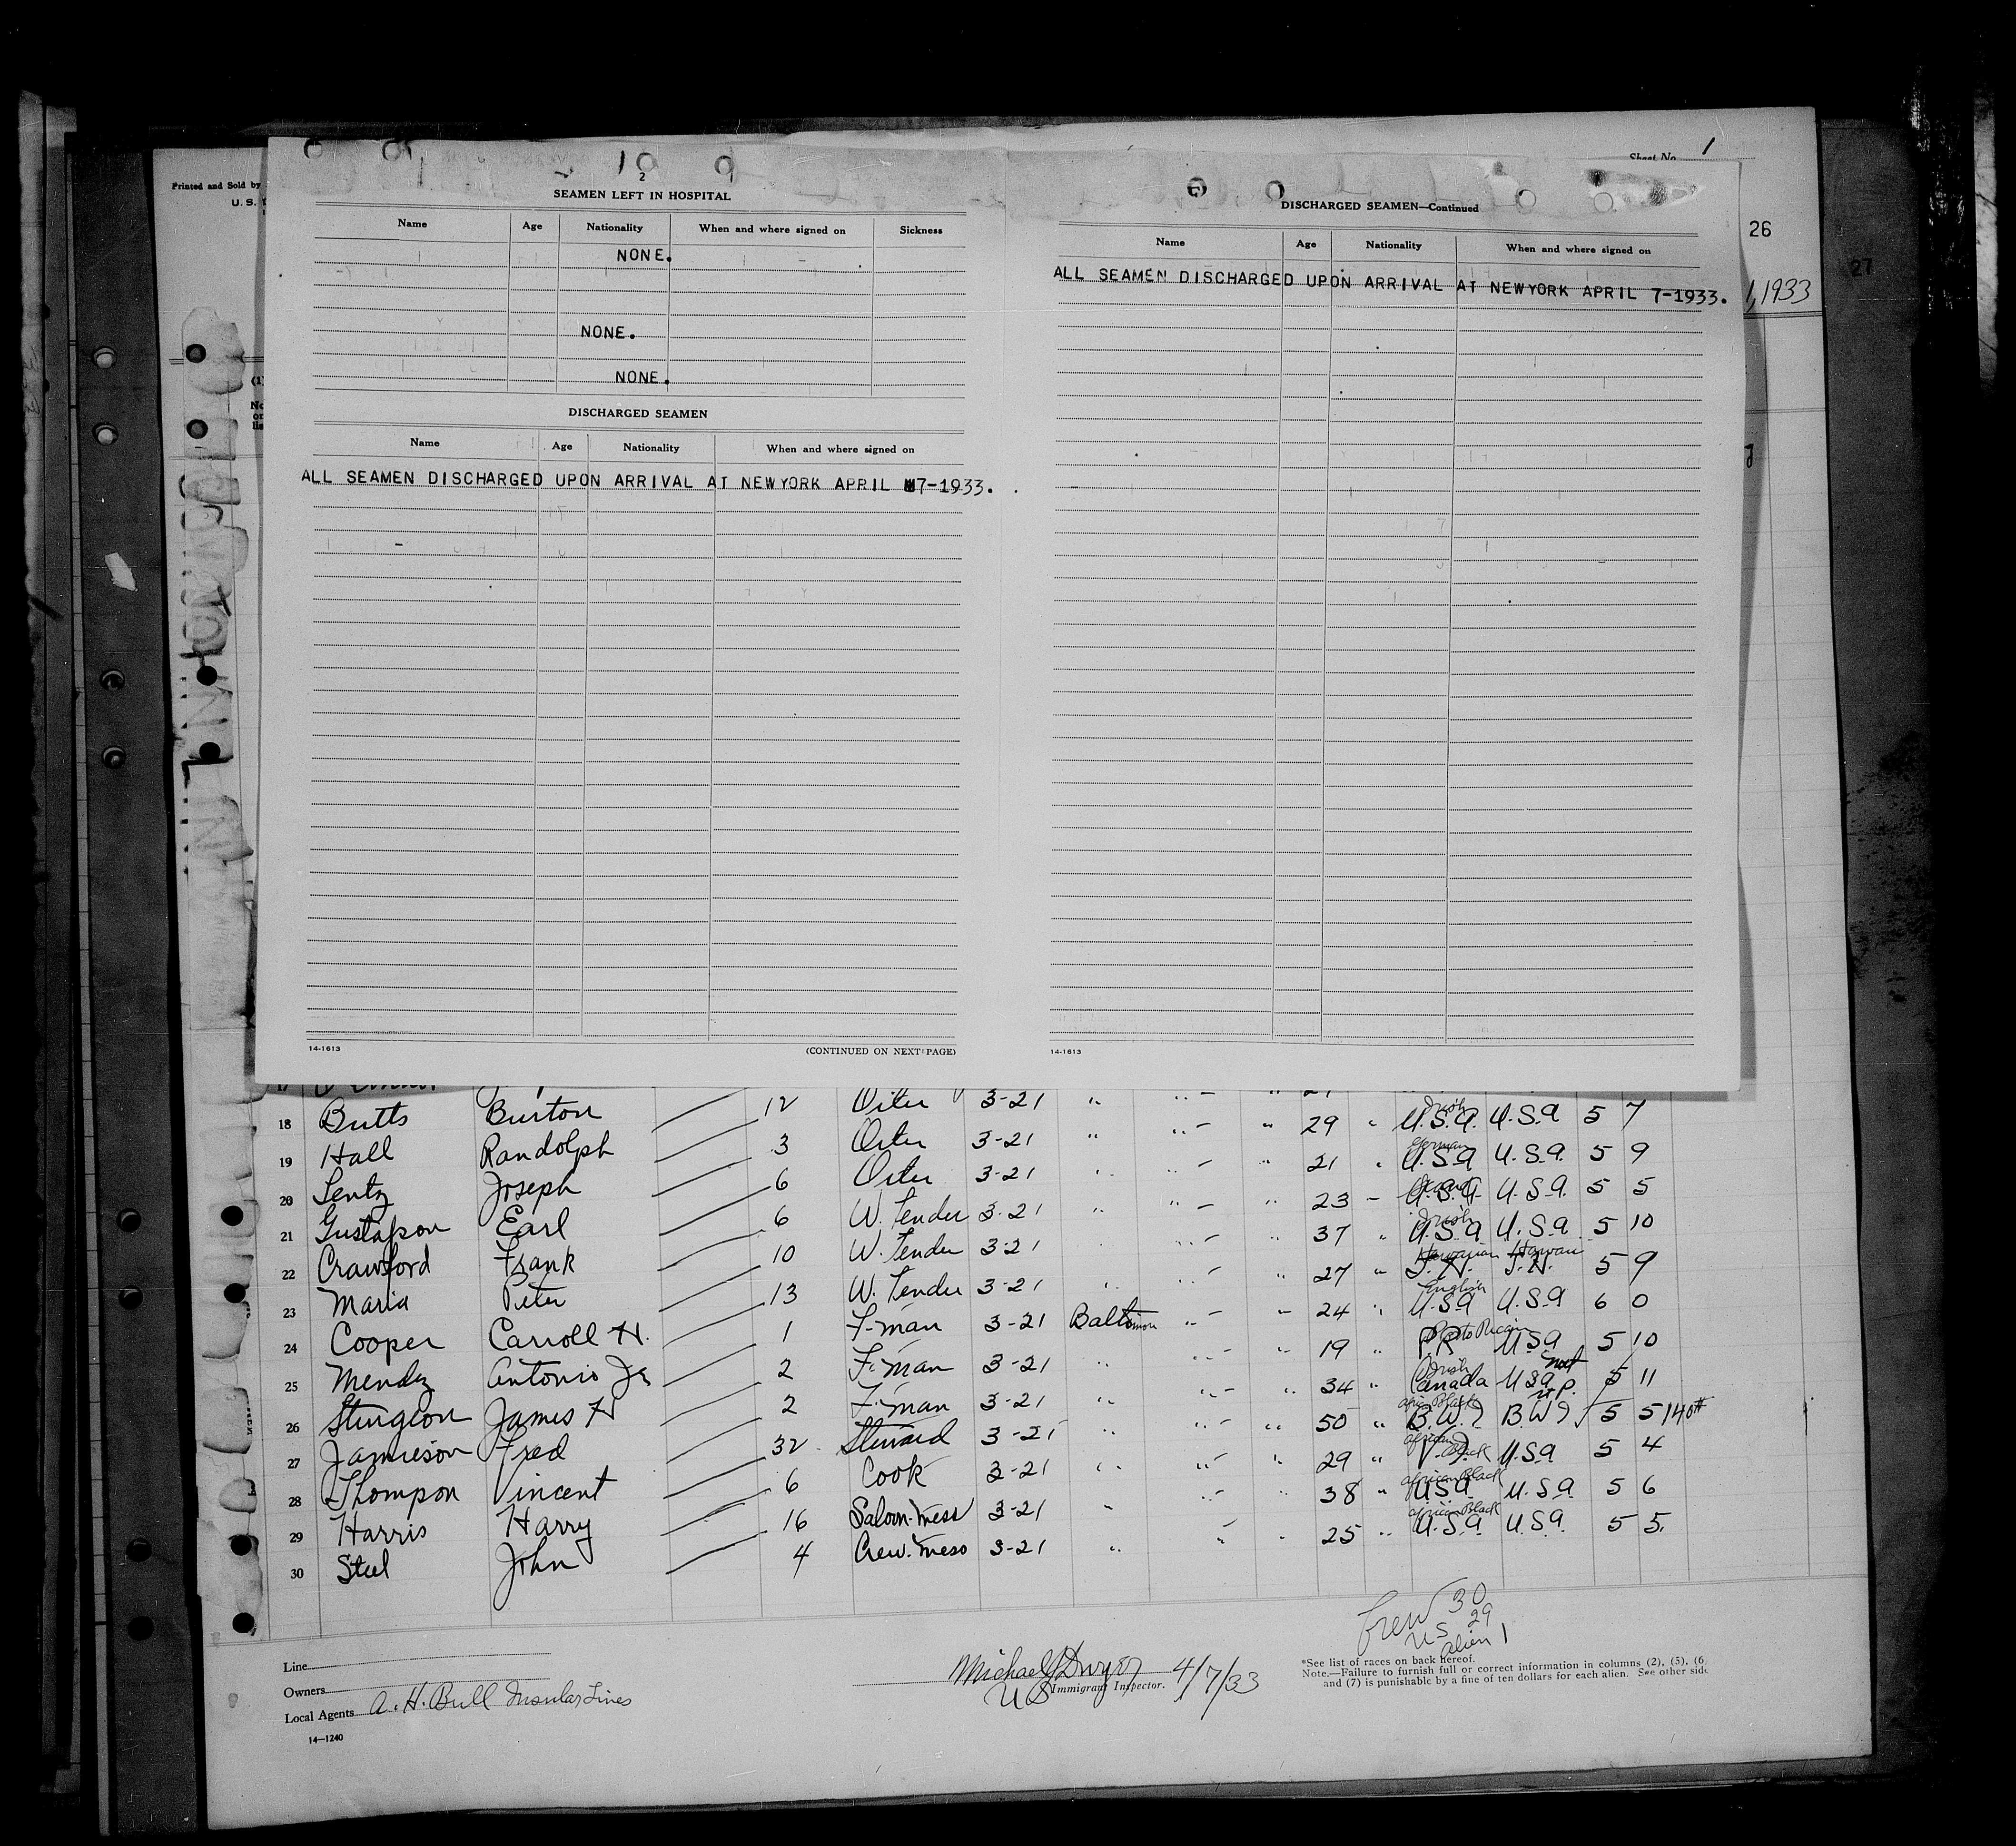 Printed and Sold by
U. S.
Sheet No. 1
26
27
1, 1933
2
SEAMEN LEFT IN HOSPITAL
Name Age Nationality When and where signed on Sickness
NONE.
NONE.
NONE.
DISCHARGED SEAMEN
Name Age Nationality When and where signed on
ALL SEAMEN DISCHARGED UPON ARRIVAL AT NEWYORK APRIL 7-1933.
14-1613 (CONTINUED ON NEXT PAGE)
DISCHARGED SEAMEN—Continued
Name Age Nationality When and where signed on
ALL SEAMEN DISCHARGED UPON ARRIVAL AT NEWYORK APRIL 7-1933.
14-1613
17
18 Butts Burton 12 Oiler 3-21 " " - " 29 " Irish U.S.A. U.S.A 5 7
19 Hall Randolph 3 Oiler 3-21 " " - " 21 " German U.S.A U.S.A. 5 9
20 Lentz Joseph 6 Oiler 3-21 " " - " 23 - U.S.A. U.S.A. 5 5
21 Gustafson Earl 6 W. Tender 3-21 " " - " 37 " Irish U.S.A U.S.A 5 10
22 Crawford Frank 10 W. Tender 3-21 " - " 27 " Hawaiian Hawaii 5 9
23 Maria Peter 13 W. Tender 3-21 " " - " 24 " English U.S.A U.S.A 6 0
24 Cooper Carroll H. 1 F-man 3-21 Baltimore " - " 19 " Porto Rican P.R. U.S.A 5 10
25 Mendez Antonio Jr 2 F-man 3-21 " " - " 34 " Irish Canada U.S.A 5 11
26 Sturgeon James H 2 F-man 3-21 " " - " 50 " African Black B.W.I B.W.I 5 5 140#
27 Jamieson Fred 32 Steward 3-21 " " - " 29 " African Black V.I. U.S.A 5 4
28 Thompson Vincent 6 Cook 3-21 " " - " 38 " African Black U.S.A U.S.A 5 6
29 Harris Harry 16 Saloon-mess 3-21 " " - " 25 " African Black U.S.A. U.S.A. 5 5.
30 Steel John 4 Crew-mess 3-21 "
Crew 30
US 29
alien 1
Line
Owners
Local Agents A. H. Bull Insular Lines
14—1240
Michael J Dwyer 4/7/33
US Immigrant Inspector.
*See list of races on back hereof.
Note.—Failure to furnish full or correct information in columns (2), (5), (6
and (7) is punishable by a fine of ten dollars for each alien. See other side